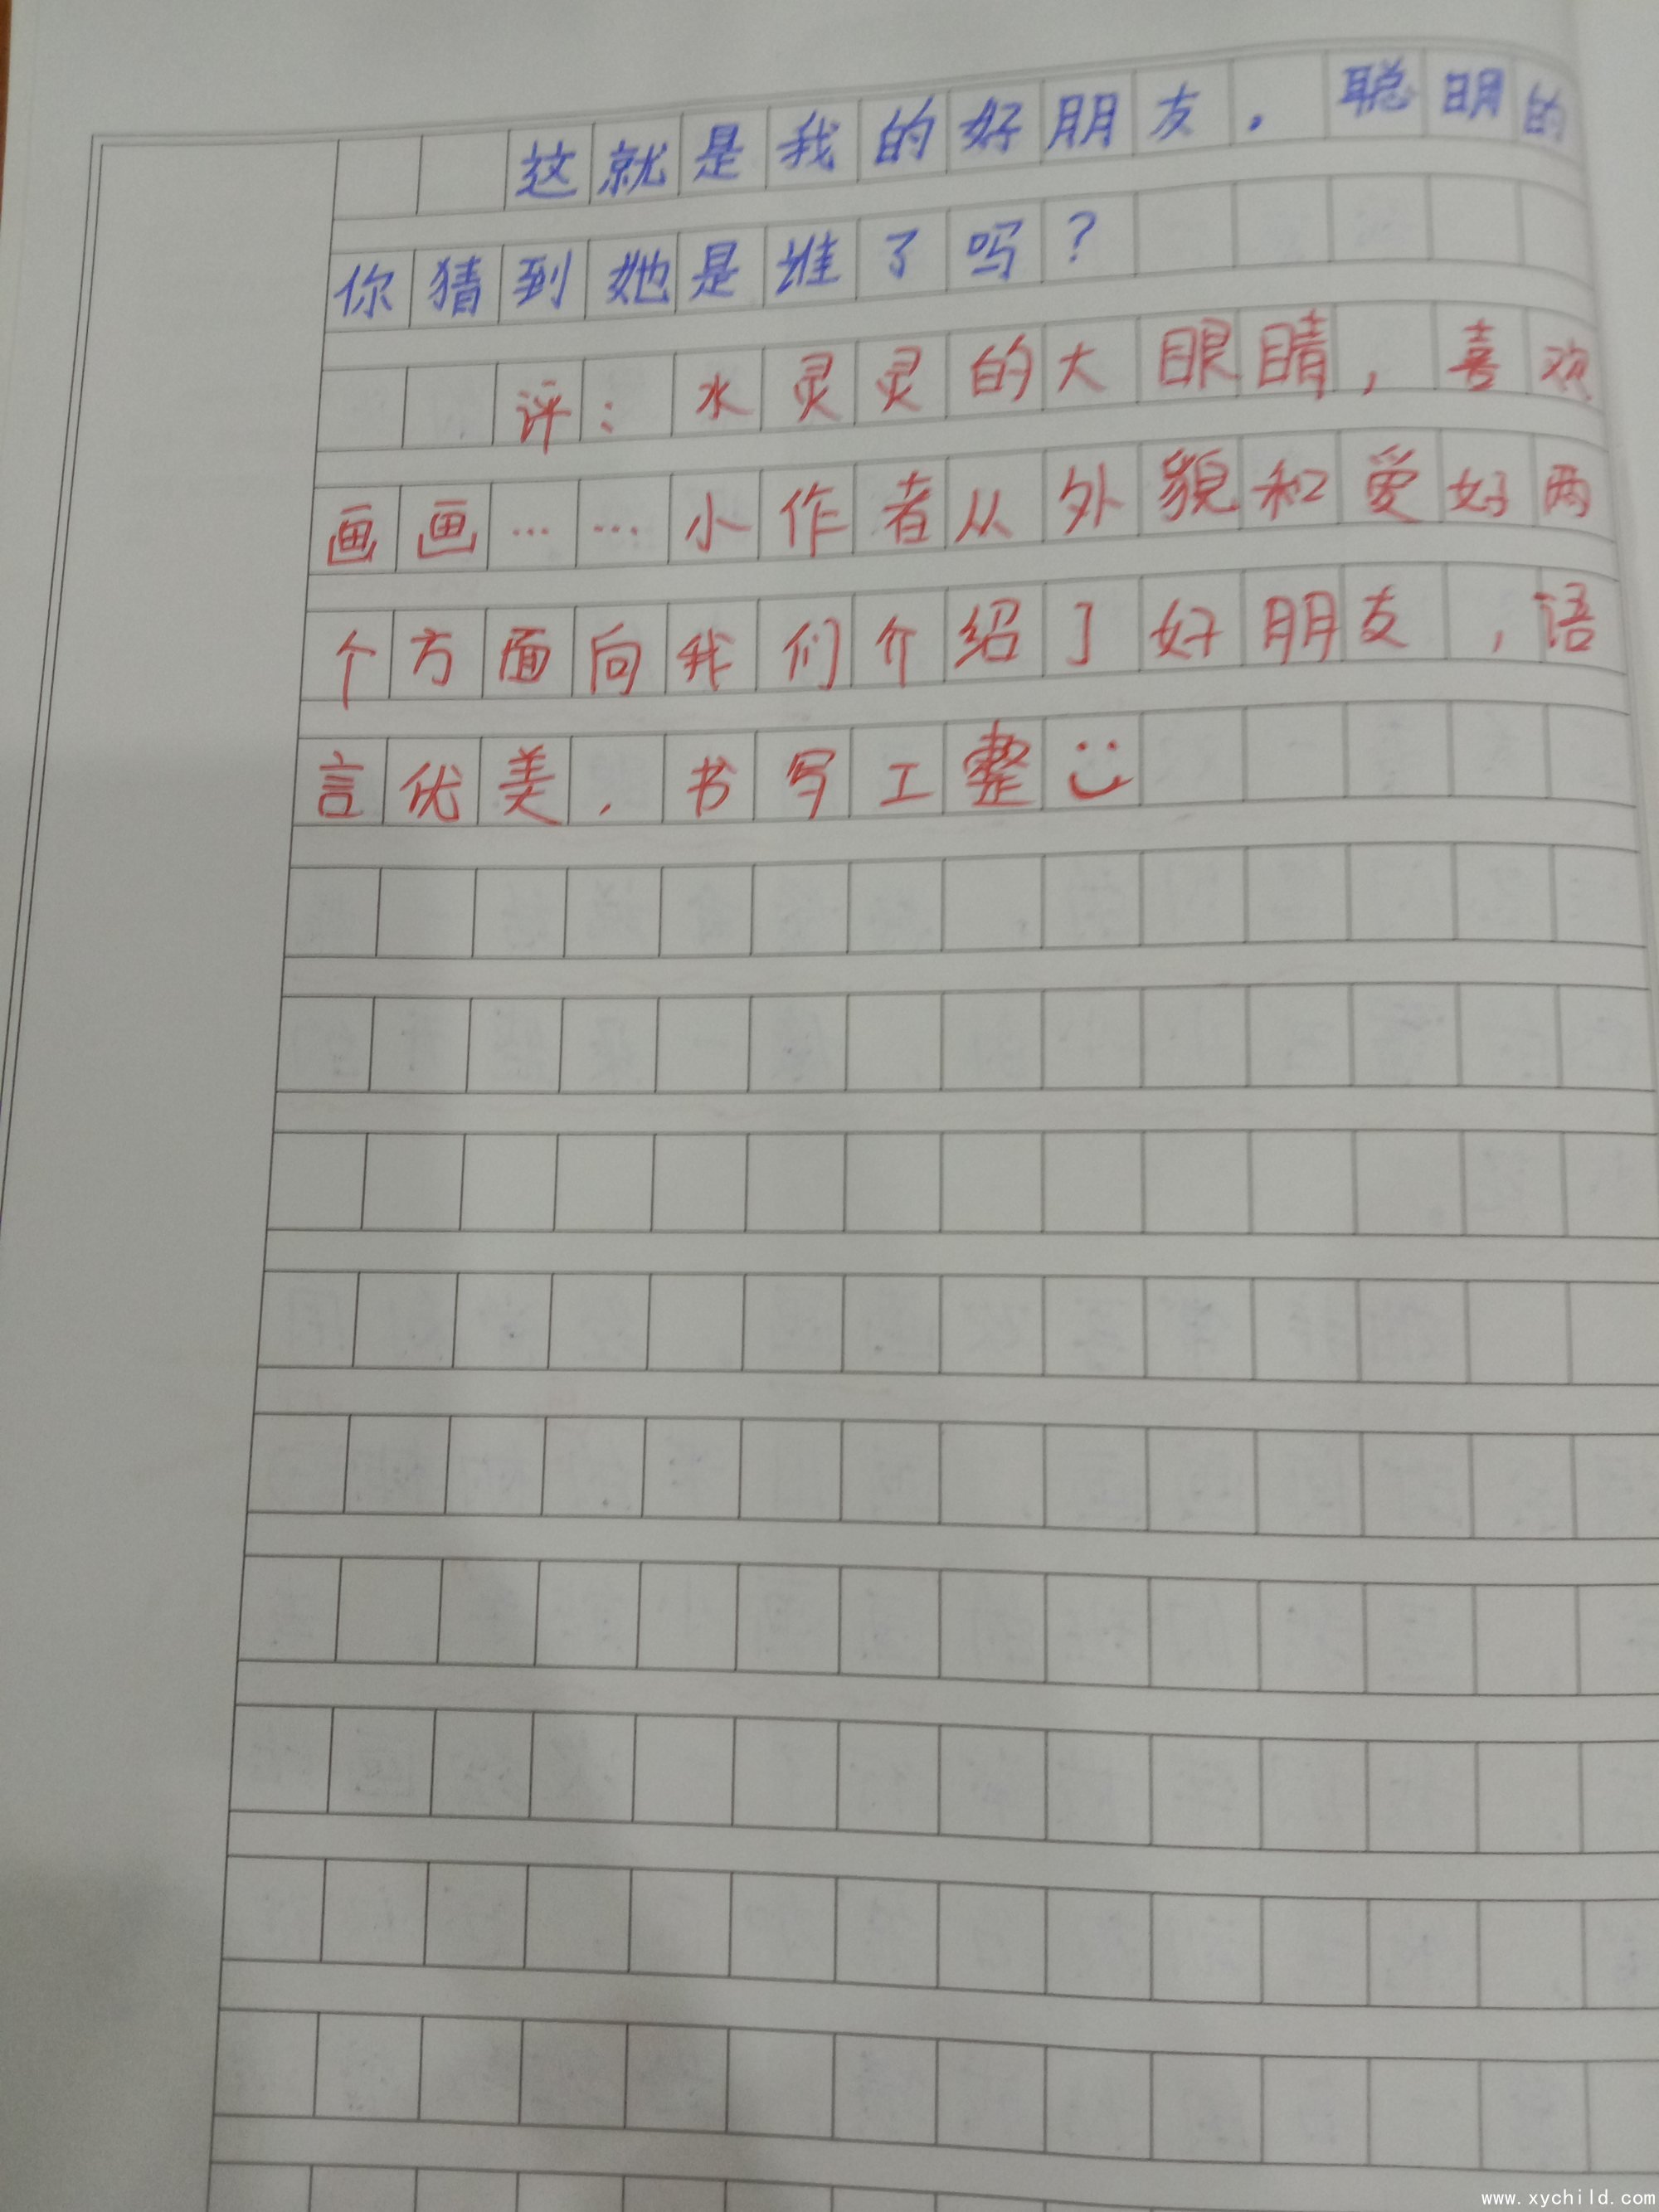 这就是我的好朋友，聪明的
你猜到她是谁了吗？
评：水灵灵的大眼睛，喜欢
画画……小作者从外貌和爱好两
个方面向我们介绍了好朋友，语
言优美，书写工整
www.xychild.com